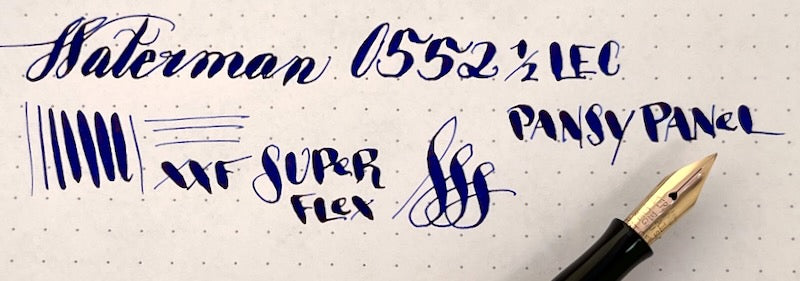 Waterman 0552 ½ LEC
PANSY PANEL
XXF SUPER
FLEX